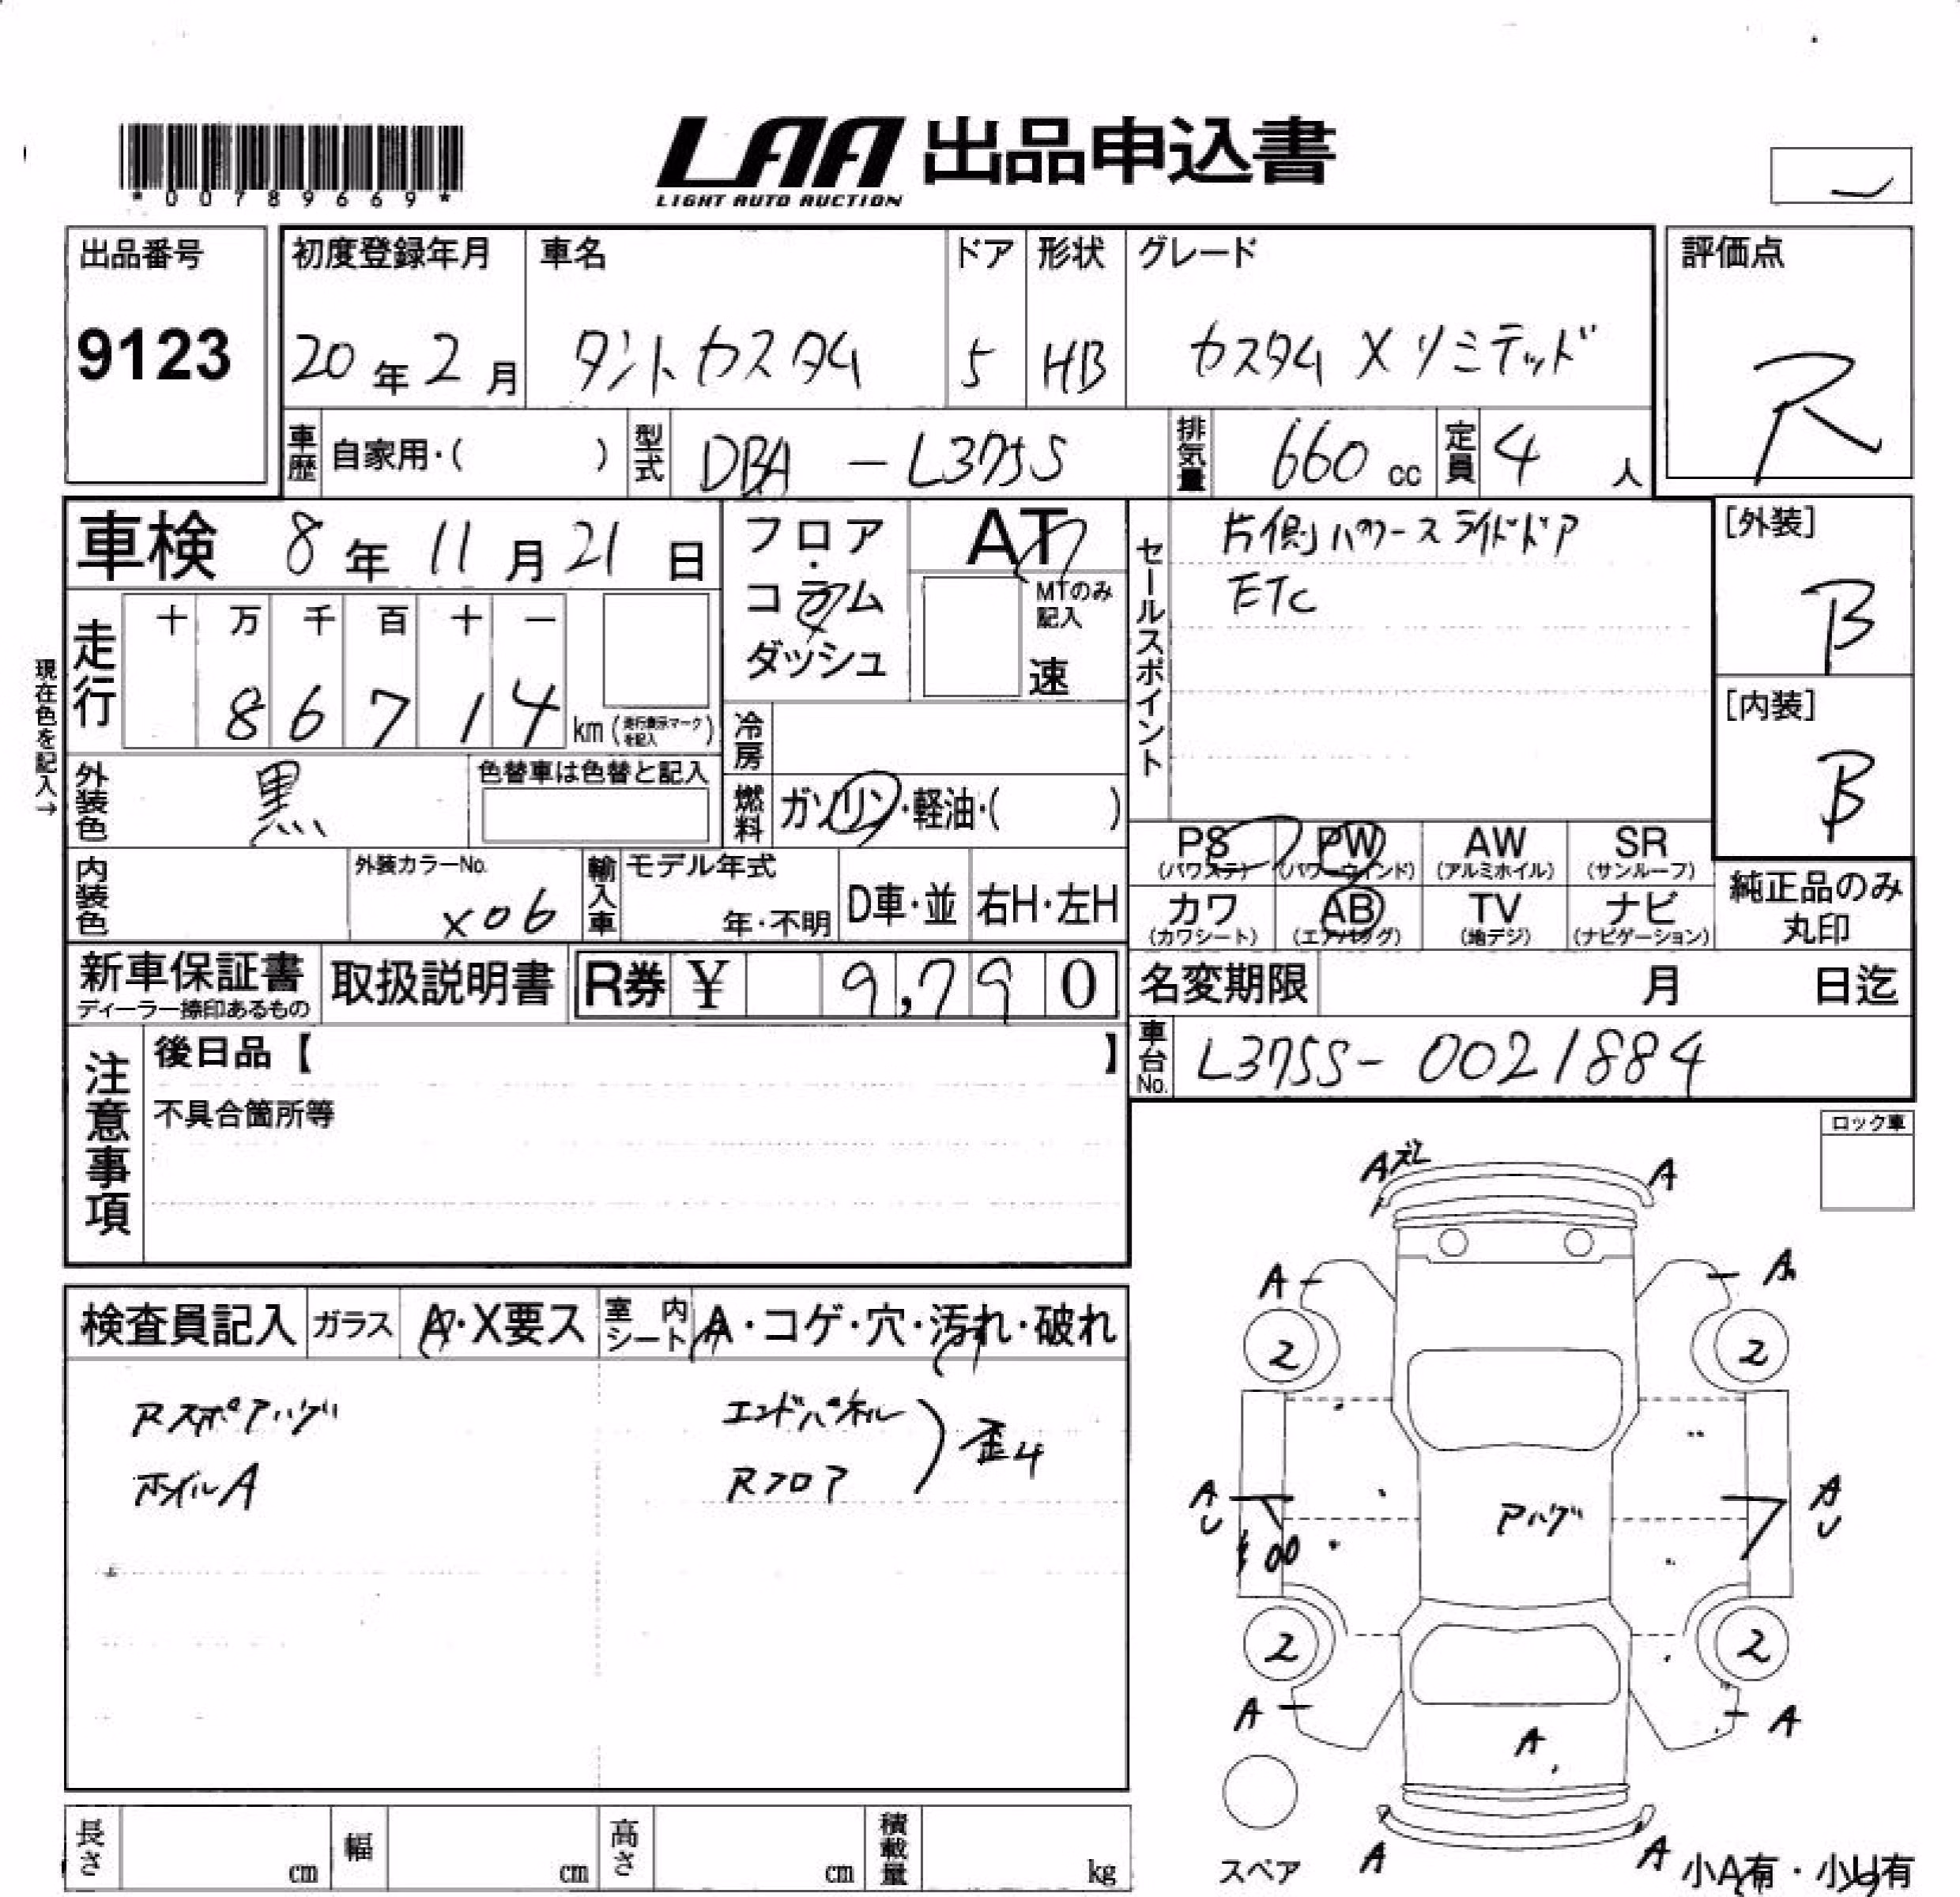 *00789669*
LAA 出品申込書
LIGHT AUTO AUCTION
出品番号
9123
初度登録年月
20年2月
車名
タントカスタム
ドア
5
形状
HB
グレード
カスタム X リミテッド
評価点
R
車歴 自家用・( )
型式 DBA - L375S
排気量 660 cc
定員 4 人
車検 8年11月21日
フロア・コラム
ダッシュ
AT
MTのみ記入
速
セールスポイント
片側パワースライドドア
ETC
[外装]
B
[内装]
B
現在色を記入→
走行
十 万 千 百 十 一
8 6 7 1 4
km (走行表示マークを記入)
冷房
外装色 黒
色替車は色替と記入
燃料 ガソリン・軽油・( )
PS (パワステ)
PW (パワーウインド)
AW (アルミホイル)
SR (サンルーフ)
カワ (カワシート)
AB (エアバッグ)
TV (地デジ)
ナビ (ナビゲーション)
純正品のみ丸印
内装色
外装カラーNo.
X06
輸入車
モデル年式
年・不明
D車・並
右H・左H
新車保証書
ディーラー捺印あるもの
取扱説明書
R券 ¥ 9,790
名変期限 月 日迄
車台No. L375S-0021884
注意事項
後日品【 】
不具合箇所等
ロック車
検査員記入
ガラス A・X要ス
室内シート A・コゲ・穴・汚れ・破れ
Rスポアハゲ
ホイルA
エンドパネル
Rフロア
歪み
Aズレ
A
A
A
2
2
A
U
アハゲ
A
U
2
2
A
A
A
A
A
スペア
小A有・小U有
長さ cm
幅 cm
高さ cm
積載量 kg